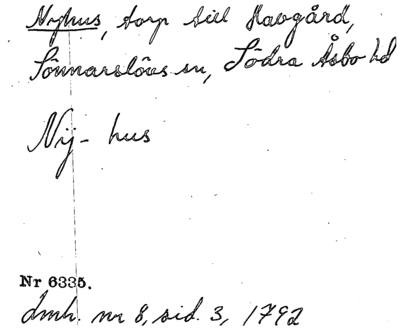 Nyhus, torp till Havgård,
Sönnarslövs sn, Södra Åsbo hd
Nij-hus
Nr 6335.
Lmh. nr 8, sid. 3, 1792